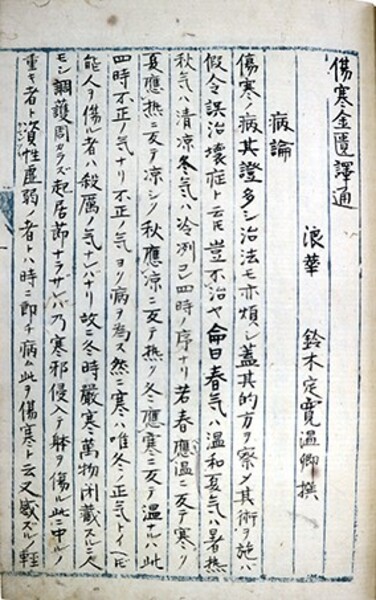 傷寒金匱譯通
浪華　鈴木定寛温卿撰
病論
傷寒ノ病其證多シ治法モ亦煩シ蓋其的方ヲ察メ其術ヲ施ハ
假令誤治壊症ト云𪜈豈不治ヤ論曰春気ハ温和夏気ハ暑熱
秋気ハ清凉冬気ハ冷冽已四時ノ序ナリ若春應温ニ反テ寒ク
夏應熱ニ反テ凉シク秋應凉ニ反テ熱ク冬應寒ニ反テ温ナルハ此
四時不正ノ気ナリ不正ノ気ヨリ病ヲ為ス然ニ寒ハ唯冬ノ正気トイヘ𪜈
能人ヲ傷ル者ハ殺厲ノ気ナレハナリ故ニ冬時嚴寒萬物閉藏スルニ人
モシ調護周カラズ起居節ナラサレハ乃寒邪侵入テ躰ヲ傷ル此ニ中ルノ
重キ者ト資性虚弱ノ者トハ時ニ即チ病ム此ヲ傷寒ト云又感ズルノ軽